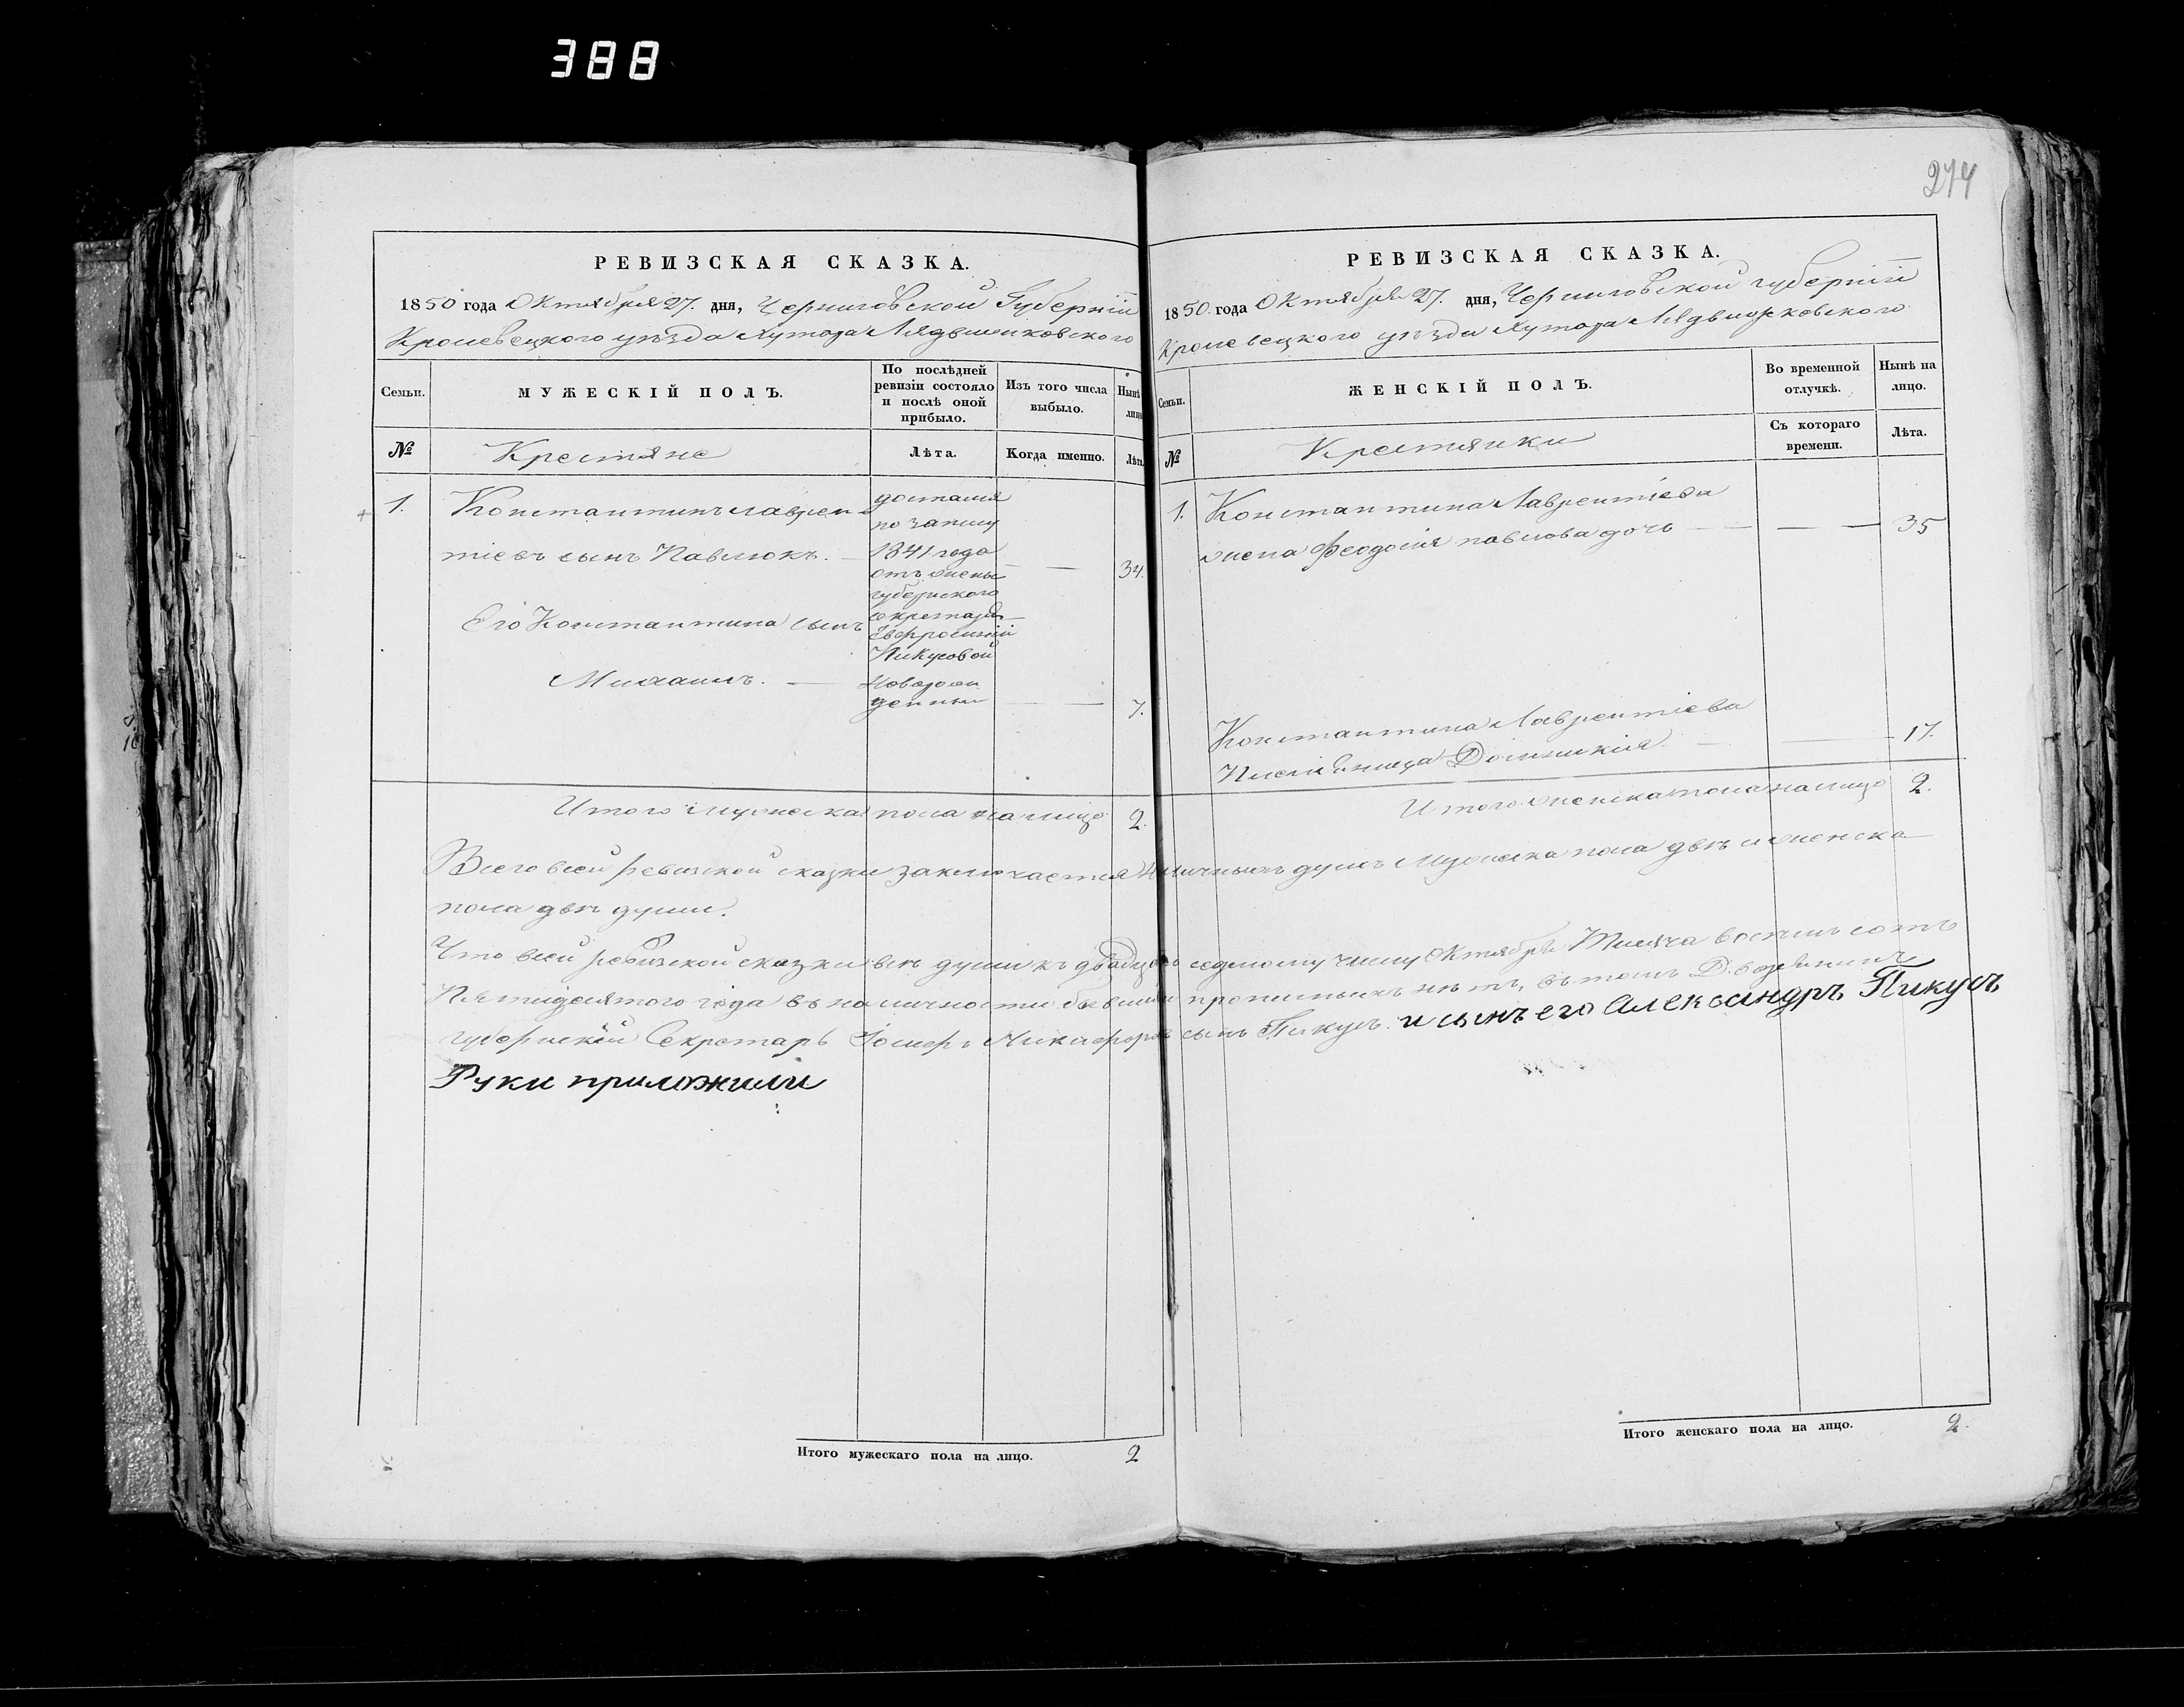 388
274
РЕВИЗСКАЯ СКАЗКА.
1850 года Октября 27. дня, Черниговской Губернiи
Кролевецкого уѣзда Хутора
Семьи.
МУЖЕСКІЙ ПОЛЪ.
По послѣдней ревизіи состояло и послѣ оной прибыло.
Изъ того числа выбыло.
Нынѣ лицо
№
Крестяне
Лѣта.
Когда именно.
Лѣта
1.
Константинъ Лаврен
тіевъ сынъ Павлюкъ.
достался
по запису
1841 года
отъ жены
губернского
секретаря
Евфросиніи
Пикусовой
34.
Его Константина сынъ
Михаилъ.
Новорож
денный
7.
Итого мужеска пола налицо 2.
РЕВИЗСКАЯ СКАЗКА.
1850. года Октября 27. дня, Черниговской губерніи
Кролевецкого уѣзда Хутора
Семьи.
ЖЕНСКІЙ ПОЛЪ.
Во временной отлучкѣ.
Нынѣ на лицо.
№
Крестянки
Съ котораго времени.
Лѣта.
1.
Константина Лаврентіева
жена Феодосия павлова дочь
35
Константина Лаврентіева
Домникия
17.
Итого женска пола налицо 2.
Всего всей ревизской сказки заключается наличныхъ душъ мужеска пола двѣ и женска
пола двѣ души.
Что всей ревизской сказки всѣ души къ двадцать седмому числу Октября Тысяча восемь сотъ
Пятидесятого года въ наличности бывшии прописныхъ нѣтъ, въ томъ
губернскій Секретарь Никифоровъ сынъ Пикусъ. и сынъ его Александръ Пикусъ
Руки приложили
Итого мужескаго пола на лицо. 2
Итого женскаго пола на лицо. 2.